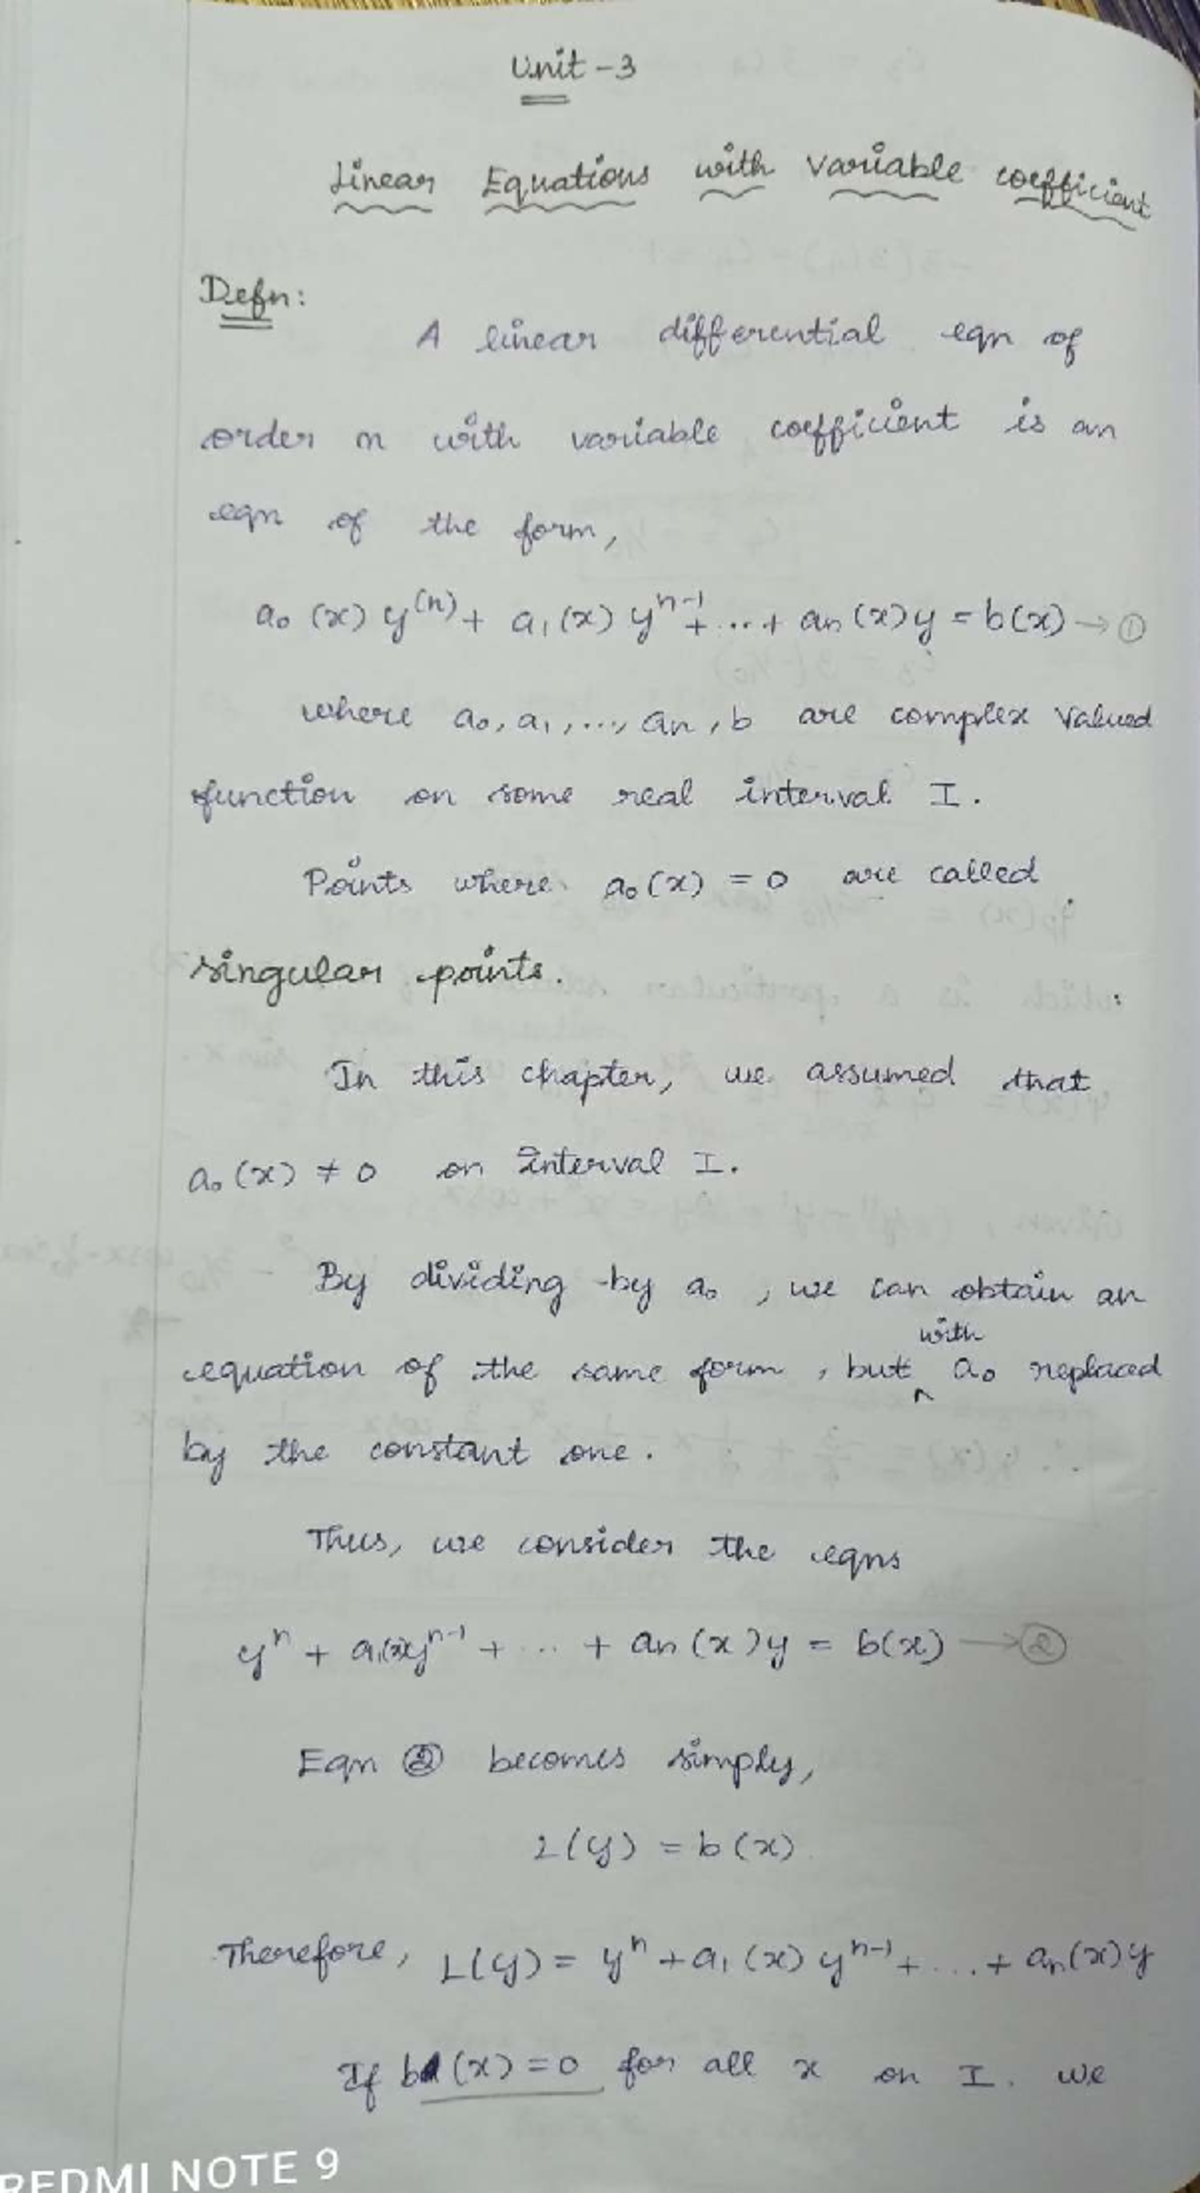 Unit - 3
Linear Equations with Variable coefficient
Defn:
A linear differential eqn of
order n with variable coefficient is an
eqn of the form,
a₀ (x) y⁽ⁿ⁾ + a₁(x) yⁿ⁻¹ + ... + aₙ (x) y = b(x) → ①
where a₀, a₁, ..., aₙ, b are complex valued
function on some real interval I.
Points where a₀(x) = 0 are called
singular points.
In this chapter, we assumed that
a₀ (x) ≠ 0 on interval I.
By dividing by a₀, we can obtain an
with
equation of the same form, but ^ a₀ replaced
by the constant one.
Thus, we consider the eqns
yⁿ + a₁(x)yⁿ⁻¹ + ... + aₙ (x)y = b(x) → ②
Eqn ② becomes simply,
L(y) = b(x)
Therefore, L(y) = yⁿ + a₁ (x) yⁿ⁻¹ + ... + aₙ(x) y
If b (x) = 0 for all x on I. we
REDMI NOTE 9